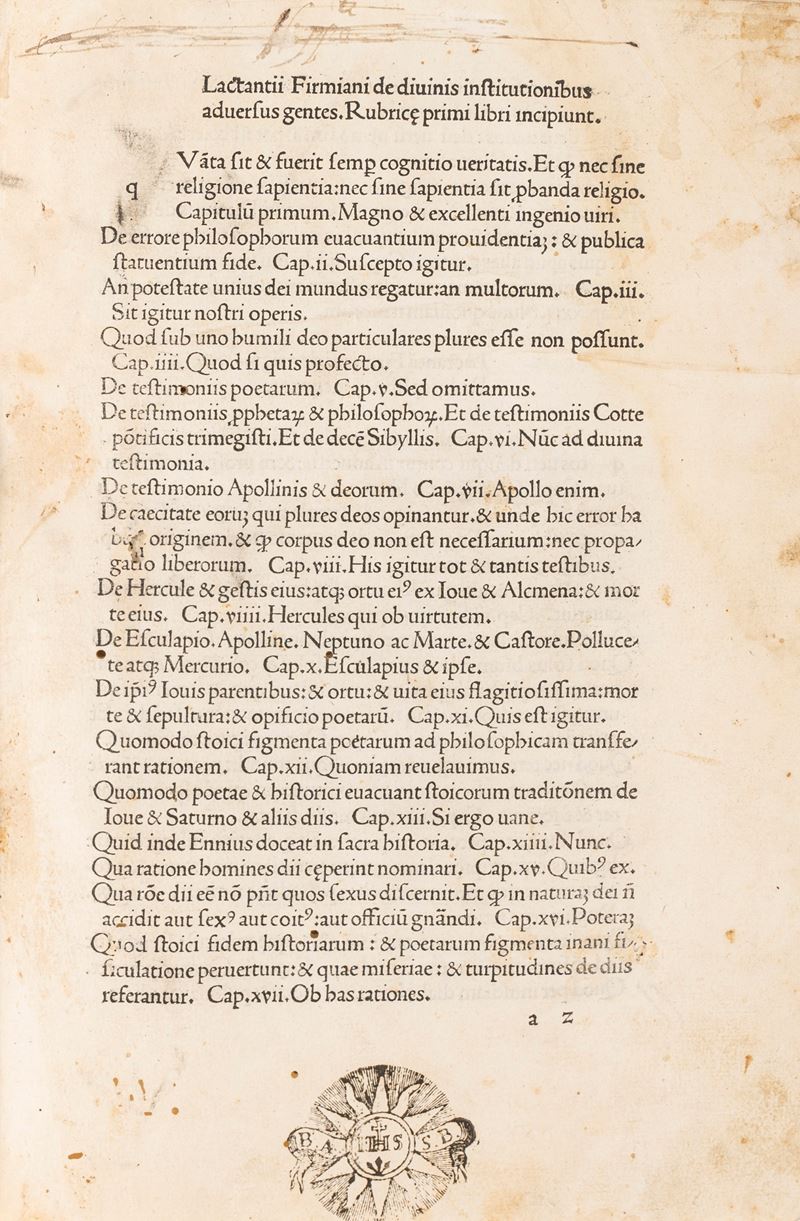 Lactantii Firmiani de diuinis inſtitutionibus
aduerſus gentes. Rubricę primi libri incipiunt.
q Vãta ſit & fuerit ſemꝑ cognitio ueritatis. Et ꝙ nec ſine
religione ſapientia: nec ſine ſapientia ſit ꝓbanda religio.
Capitulũ primum. Magno & excellenti ingenio uiri.
De errore philoſophorum euacuantium prouidentiaꝫ: & publica
ſtatuentium fide. Cap. ii. Suſcepto igitur.
An̄ poteſtate unius dei mundus regatur: an multorum. Cap. iii.
Sit igitur noſtri operis.
Quod ſub uno humili deo particulares plures eſſe non poſſunt.
Cap. iiii. Quod ſi quis profecto.
De teſtimoniis poetarum. Cap. v. Sed omittamus.
De teſtimoniis ꝓphetaꝝ & philoſophoꝝ. Et de teſtimoniis Cotte
põtificis trimegiſti. Et de decẽ Sibyllis. Cap. vi. Nũc ad diuina
teſtimonia.
De teſtimonio Apollinis & deorum. Cap. vii. Apollo enim.
De caecitate eoruꝫ qui plures deos opinantur. & unde hic error ha
originem. & ꝙ corpus deo non eſt neceſſarium: nec propa⸗
gatio liberorum. Cap. viii. His igitur tot & tantis teſtibus.
De Hercule & geſtis eius: atqꝫ ortu eiꝰ ex Ioue & Alcmena: & mor
te eius. Cap. viiii. Hercules qui ob uirtutem.
De Eſculapio. Apolline. Neptuno ac Marte. & Caſtore. Polluce⸗
te atqꝫ Mercurio. Cap. x. Eſculapius & ipſe.
De ip̃iꝰ Iouis parentibus: & ortu: & uita eius flagitioſiſſima: mor
te & ſepultura: & opificio poetarũ. Cap. xi. Quis eſt igitur.
Quomodo ſtoici figmenta poetarum ad philoſophicam tranſfe⸗
rant rationem. Cap. xii. Quoniam reuelauimus.
Quomodo poetae & hiſtorici euacuant ſtoicorum traditõnem de
Ioue & Saturno & aliis diis. Cap. xiii. Si ergo uane.
Quid inde Ennius doceat in ſacra hiſtoria. Cap. xiiii. Nunc.
Qua ratione homines dii cęperint nominari. Cap. xv. Quibꝰ ex.
Qua rõe dii eẽ nõ pñt quos ſexus diſcernit. Et ꝙ in naturaꝫ dei ñ
accidit aut ſexꝰ aut coitꝰ: aut officiũ gnãndi. Cap. xvi. Poteraꝫ
Quod ſtoici fidem hiſtoriarum: & poetarum figmenta inani fi⸗
ſiculatione peruertunt: & quae miſeriae: & turpitudines de diis
referantur. Cap. xvii. Ob has rationes.
a 2
B. A. IHS S. B.